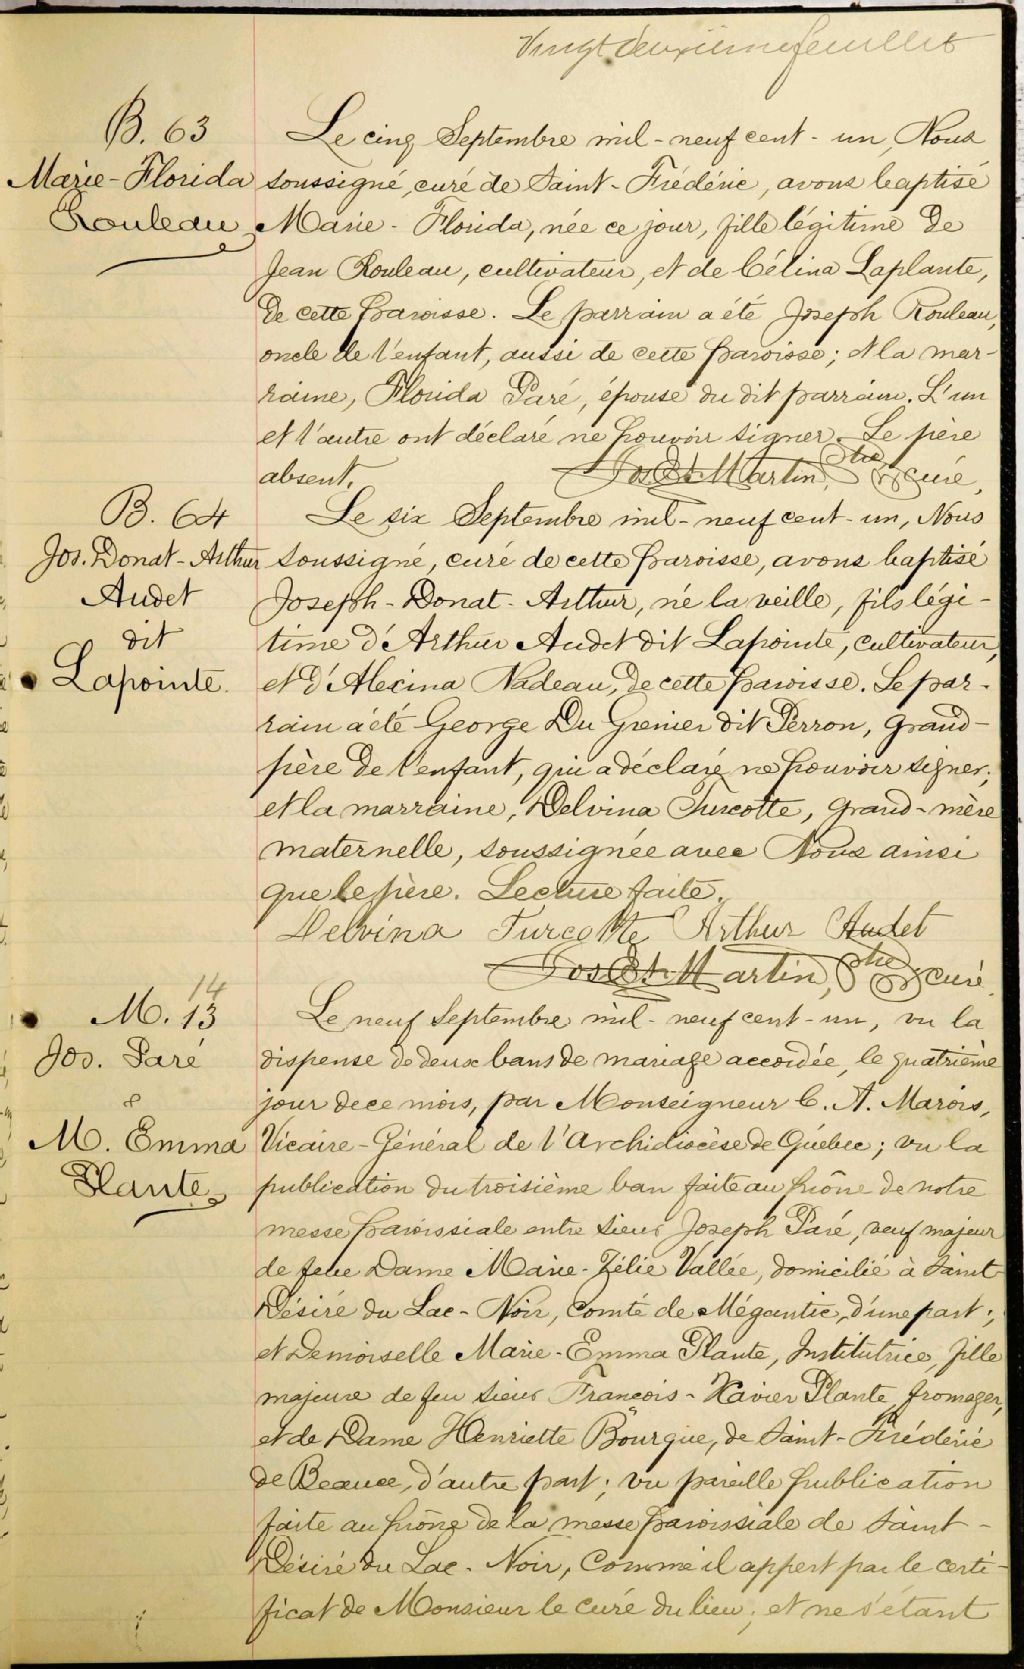 Vingt deuxième feuillet
B. 63
Marie-Florida
Rouleau
Le cinq Septembre mil-neuf cent-un, Nous
soussigné, curé de Saint-Frédéric, avons baptisé
Marie-Florida, née ce jour, fille légitime de
Jean Rouleau, cultivateur, et de Célina Laplante,
de cette paroisse. Le parrain a été Joseph Rouleau,
oncle de l'enfant, aussi de cette paroisse; et la mar-
raine, Florida Paré, épouse du dit parrain. L'un
et l'autre ont déclaré ne pouvoir signer. Le père
absent.
Jos Et Martin, Ptre curé,
B. 64
Jos. Donat-Arthur
Audet
dit
Lapointe.
Le six Septembre mil-neuf cent-un, Nous
soussigné, curé de cette paroisse, avons baptisé
Joseph-Donat-Arthur, né la veille, fils légi-
time d'Arthur Audet dit Lapointe, cultivateur,
et d'Alexina Nadeau, de cette paroisse. Le par-
rain a été George Du Grenier dit Perron, grand-
père de l'enfant, qui a déclaré ne pouvoir signer;
et la marraine, Delvina Turcotte, grand-mère
maternelle, soussignée avec Nous ainsi
que le père. Lecture faite.
Delvina Turcotte Arthur Audet
Jos Et Martin, Ptre curé.
14
M. 13
Jos. Paré
&
M. Emma
Plante
Le neuf Septembre mil-neuf cent-un, vu la
dispense de deux bans de mariage accordée, le quatrième
jour de ce mois, par Monseigneur C. A. Marois,
Vicaire-Général de l'Archidiocèse de Québec; vu la
publication du troisième ban faite au prône de notre
messe paroissiale entre Sieur Joseph Paré, veuf majeur
de feue Dame Marie-Zélie Vallée, domicilié à Saint-
Désiré du Lac-Noir, comté de Mégantic, d'une part;
et Demoiselle Marie-Emma Plante, Institutrice, fille
majeure de feu Sieur Francois-Xavier Plante, fromager,
et de Dame Henriette Bourque, de Saint-Frédéric
de Beauce, d'autre part; vu pareille publication
faite au prône de la messe paroissiale de Saint-
Désiré du Lac-Noir, comme il appert par le certi-
ficat de Monsieur le curé du lieu; et ne s'étant